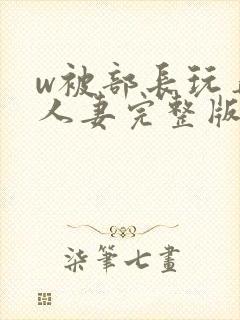 w被部長玩
人妻完整版
柒筆七畫